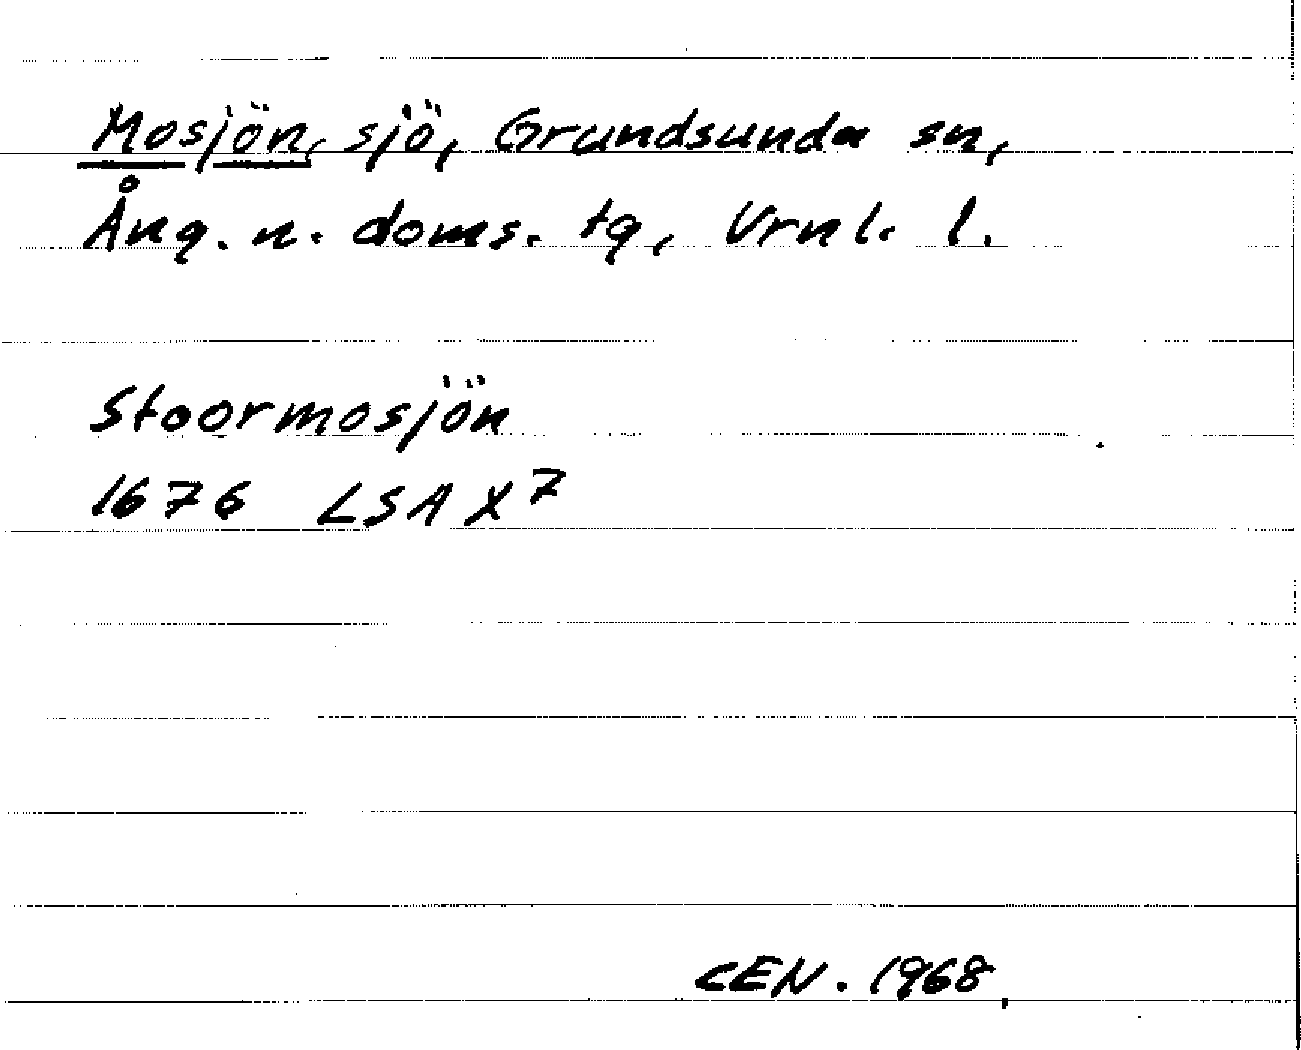 Mosjön, sjö, Grundsunda sn,
Ång. n. doms. tg, Vrnl. l.
Stoormosjön
1676 LSA X 7
CEN. 1968